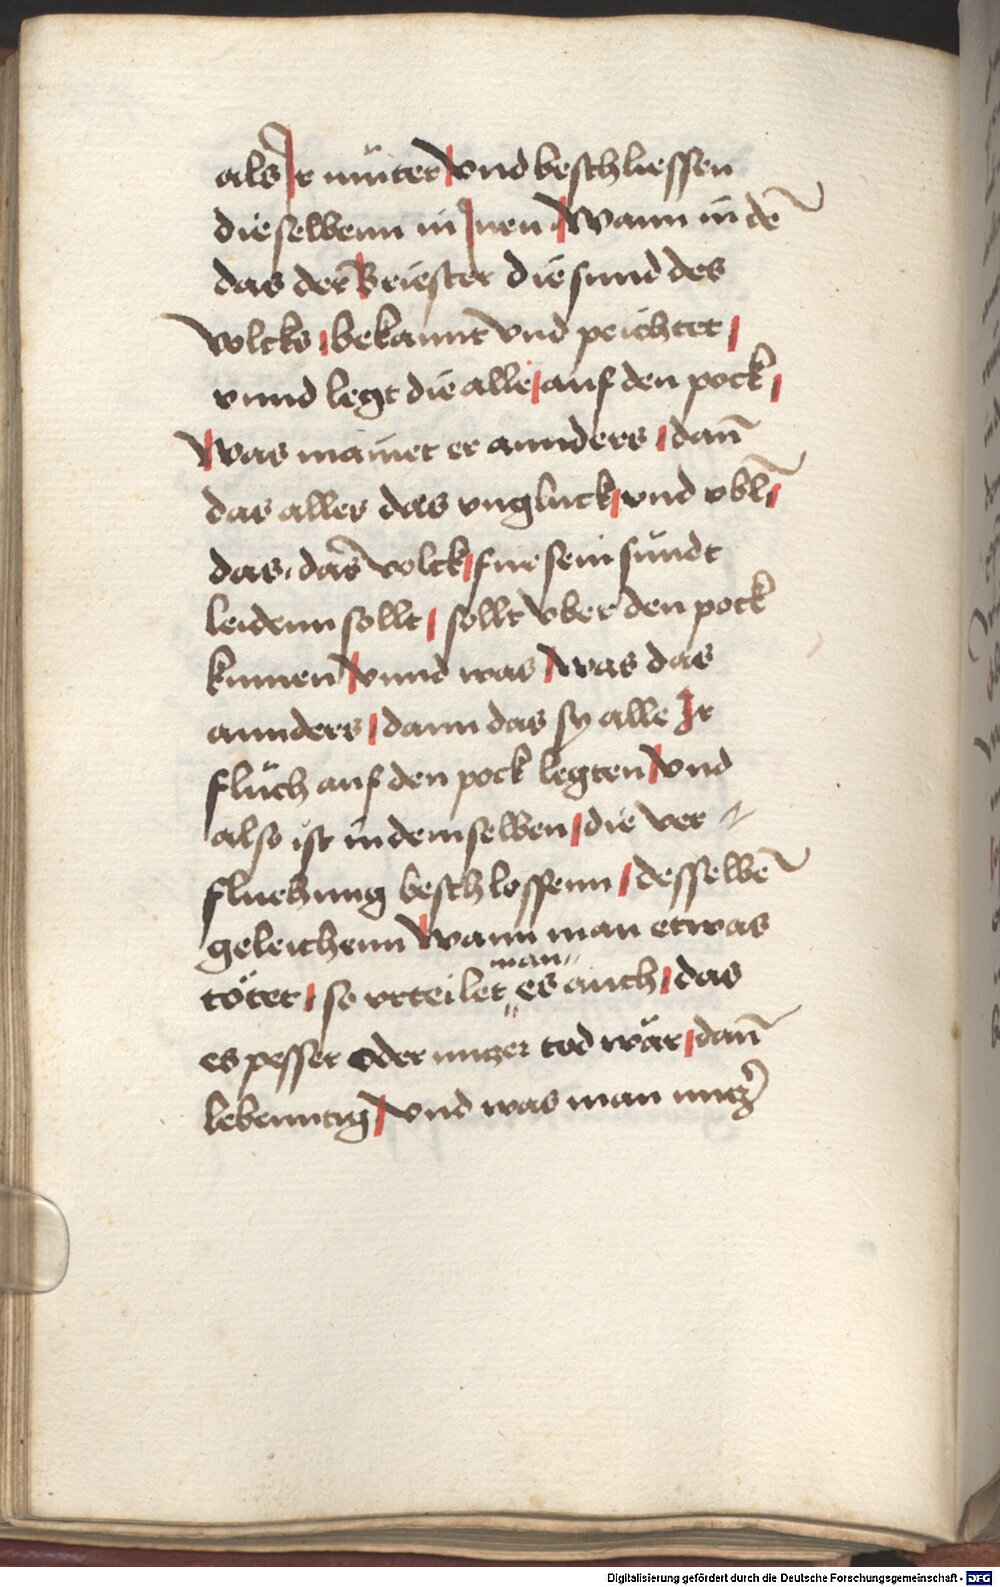 als Ir muͤter vnd beschliessen
die selbenn in Inen / Wann in dē
das der Briester die sund des
volcks / bekannt vnd peichtet /
vnnd legt die alle / auf den pock /
Was mainet er annders / dan̄
das alles das vngluck / vnd vbl /
das, das volck / fur sein sundt
leidenn sollt / sollt vber den pock
kumen / vnnd was / was das
annders / dann das sy alle Ir
fluͤch auf den pock legten / vnd
also ist in demselben / die ver
fluchung beschlossenn / desselbē
geleichenn wann man etwas
toͤtet / so vrteilet man es auch / das
es pesser oder nutzer tod waͤr / dan̄
lebenntig / vnd was man nutz
Digitalisierung gefördert durch die Deutsche Forschungsgemeinschaft - DFG